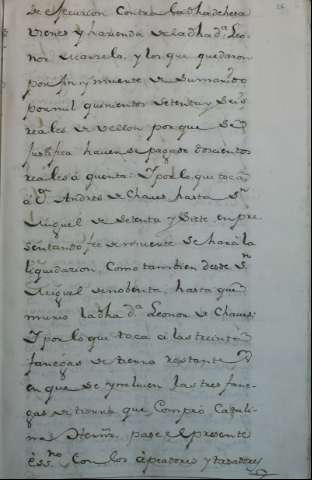 de execucion Contra la dha dehesa
vienes y hazienda de la dha Da. Leo
nor de
y los que quedaron
por fin y muerte de su marido
por mil quinientos setenta y Seis
reales de vellon por que se
Justifica haverse pagado doscientos
reales a quenta: Y por lo que toca
à Dn. Andres de Chaves hasta Sn.
Miguel de Setenta y Siete en pre
sentando fee de muerte se hará la
liquidacion, Como tambien desde Sn.
Miguel de nobenta, hasta que
murio la dha Da. Leonor de Chaves;
Y por lo que toca à las treinta
fanegas de tierra restantes
en que se yncluen las tres fane-
gas de tierra que Compró
pase el presente
ess.no Con los apeadores y tasadores